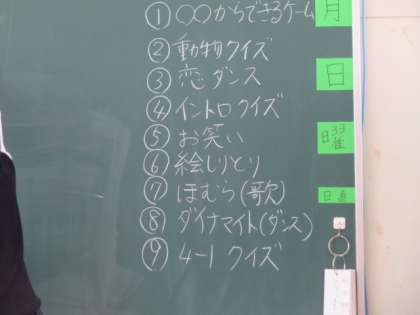 ① ○○からできるゲーム
② 動物クイズ
③ 恋ダンス
④ イントロクイズ
⑤ お笑い
⑥ 絵しりとり
⑦ ほむら(歌)
⑧ ダイナマイト(ダンス)
⑨ 4-1 クイズ
月
日
曜
日直